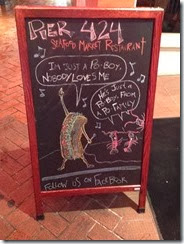 PIER 424
SEAFOOD MARKET RESTAURANT
I'M JUST A PO-BOY,
NOBODY LOVES ME
HE'S JUST A
PO-BOY, FROM
A PO-FAMILY
FOLLOW US ON FACEBOOK